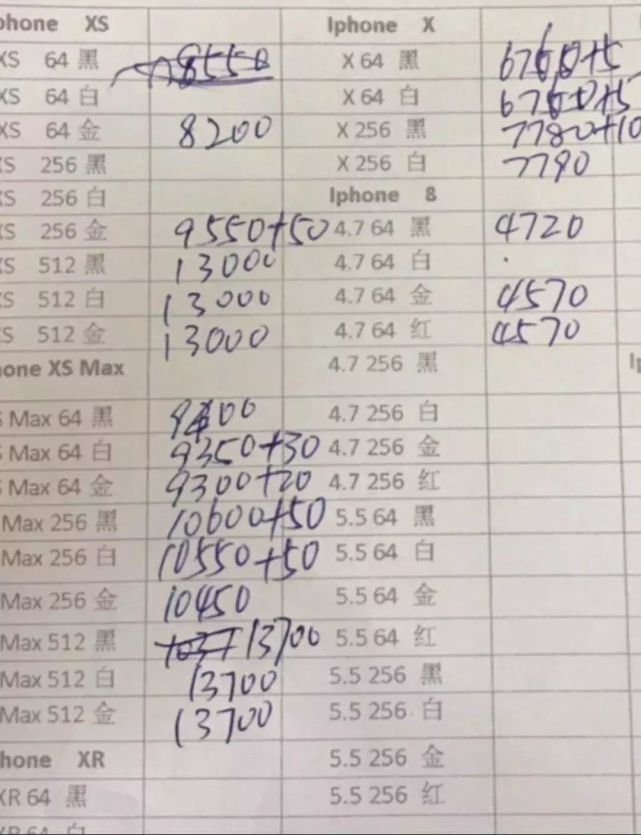 phone XS Iphone X
XS 64 黑 8550 X 64 黑 6760+5
XS 64 白 X 64 白 6760+5
XS 64 金 8200 X 256 黑 7780+10
XS 256 黑 X 256 白 7790
XS 256 白 Iphone 8
XS 256 金 9550+50 4.7 64 黑 4720
XS 512 黑 13000 4.7 64 白
XS 512 白 13000 4.7 64 金 4570
XS 512 金 13000 4.7 64 红 4570
hone XS Max 4.7 256 黑
S Max 64 黑 9400 4.7 256 白
S Max 64 白 9350+30 4.7 256 金
S Max 64 金 9300+20 4.7 256 红
Max 256 黑 10600+50 5.5 64 黑
Max 256 白 10550+50 5.5 64 白
Max 256 金 10450 5.5 64 金
Max 512 黑 13700 5.5 64 红
Max 512 白 13700 5.5 256 黑
Max 512 金 13700 5.5 256 白
hone XR 5.5 256 金
XR 64 黑 5.5 256 红
XR 64 白